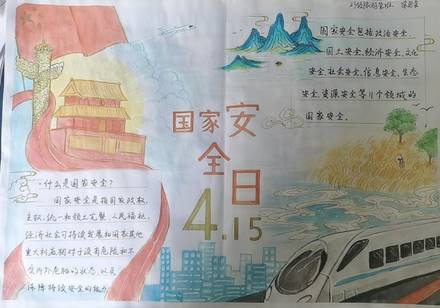 国家安全包括政治安全、
国土安全、经济安全、文化
安全、社会安全、信息安全、生态
安全、资源安全等11个领域的
国家安全。
国家安全日
4.15
·什么是国家安全?
国家安全是指国家政权、
主权、统一和领土完整、人民福祉、
经济社会可持续发展和国家其他
重大利益相对于没有危险和不
受内外危胁的状态,以及
保障持续安全的能力